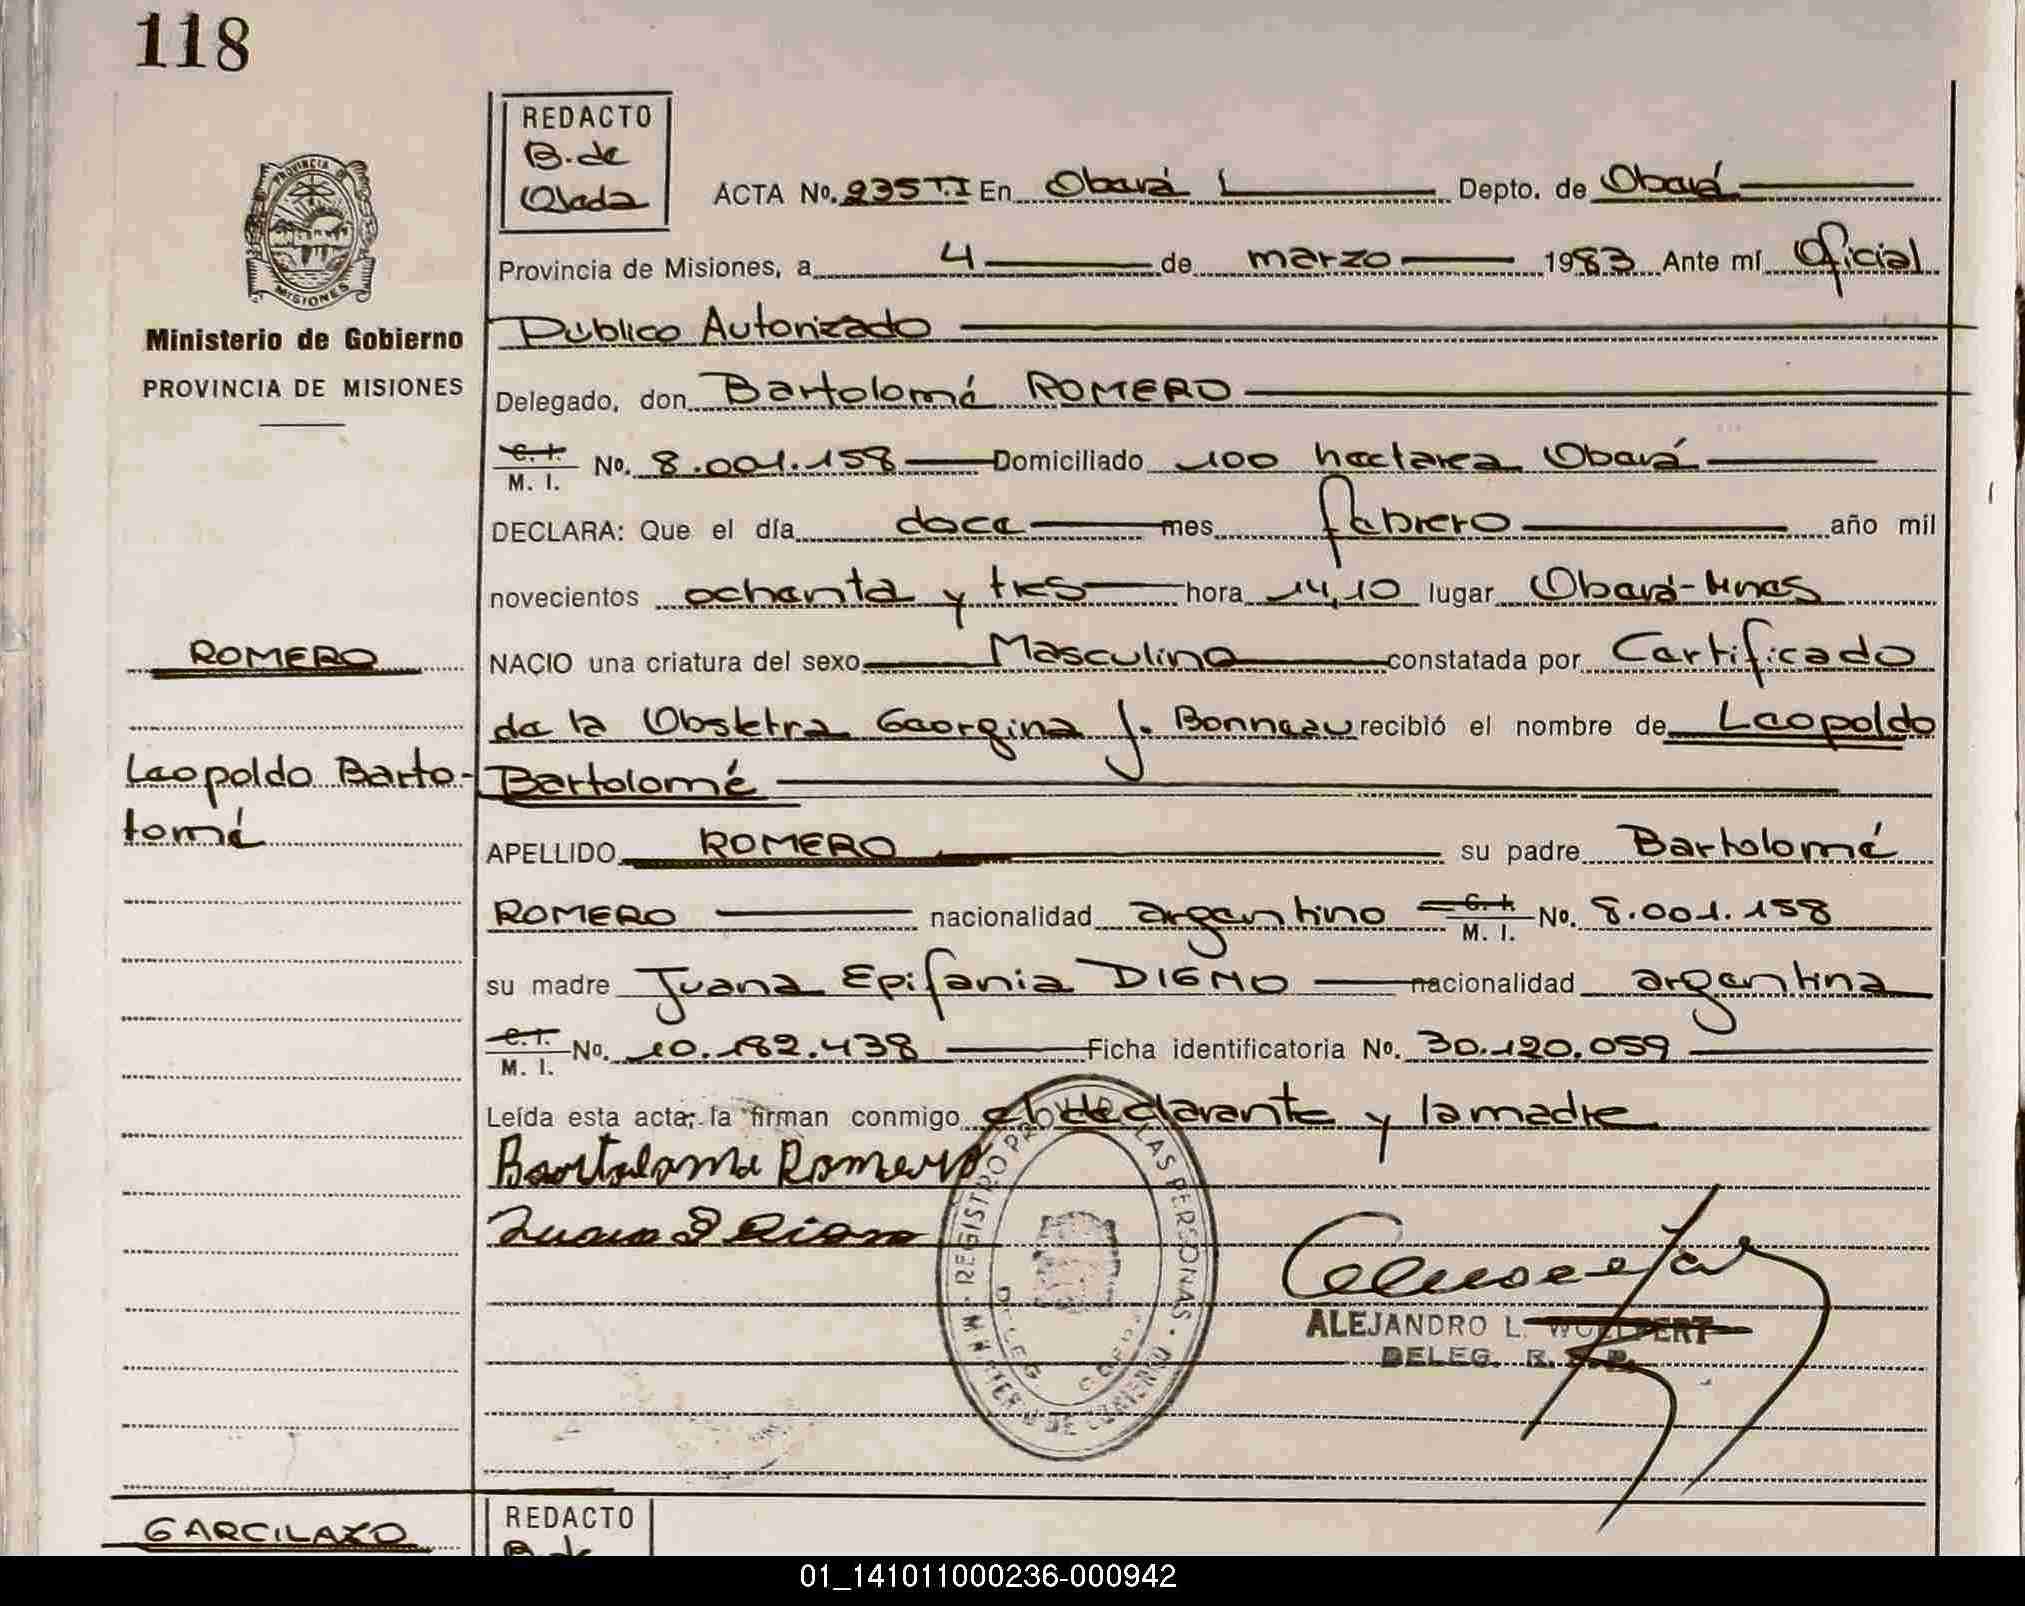 118
REDACTO
B. de
Ojeda
PROVINCIA D
MISIONES
Ministerio de Gobierno
PROVINCIA DE MISIONES
ACTA No. 235 T.I En Oberá Depto. de Oberá
Provincia de Misiones, a 4 de marzo 1983 Ante mí Oficial
Público Autorizado
Delegado, don Bartolomé ROMERO
C. I.
M. I. No. 8.001.158 Domiciliado 100 hectarea Oberá
DECLARA: Que el día doce mes febrero año mil
novecientos ochenta y tres hora 14,10 lugar Oberá-Mnes
ROMERO
NACIO una criatura del sexo Masculino constatada por Certificado
de la Obstetra Georgina J. Bonneau recibió el nombre de Leopoldo
Leopoldo Barto-
lomé
Bartolomé
APELLIDO ROMERO su padre Bartolomé
ROMERO nacionalidad argentino C. I.
M. I. No. 8.001.158
su madre Juana Epifania DIEMO nacionalidad argentina
C. I.
M. I. No. 10.182.438 Ficha identificatoria No. 30.120.059
Leída esta acta, la firman conmigo el declarante y la madre
Bartolome Romero
Juana E
REGISTRO PRO LAS PERSONAS
DELEG.
ALEJANDRO L.
DELEG. R.
GARCILAZO
REDACTO
B. de
01_141011000236-000942